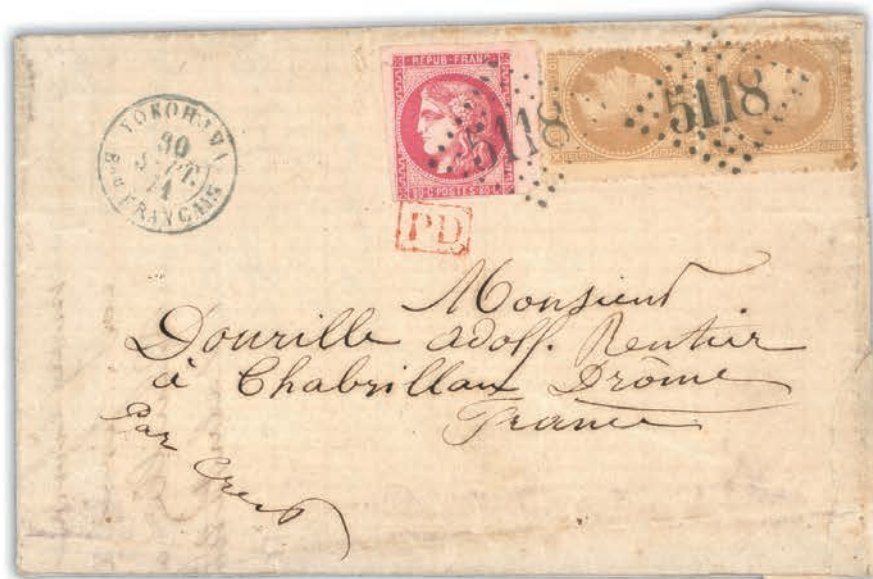 YOKOHAMA
30
SEPT.
71
Bau FRANÇAIS
REPUB·FRANC
80·C·POSTES·80·C
5118
5118
PD
Monsieur
Dourille Adolf. Rentier
à Chabrillan Drôme
France
Par Crest